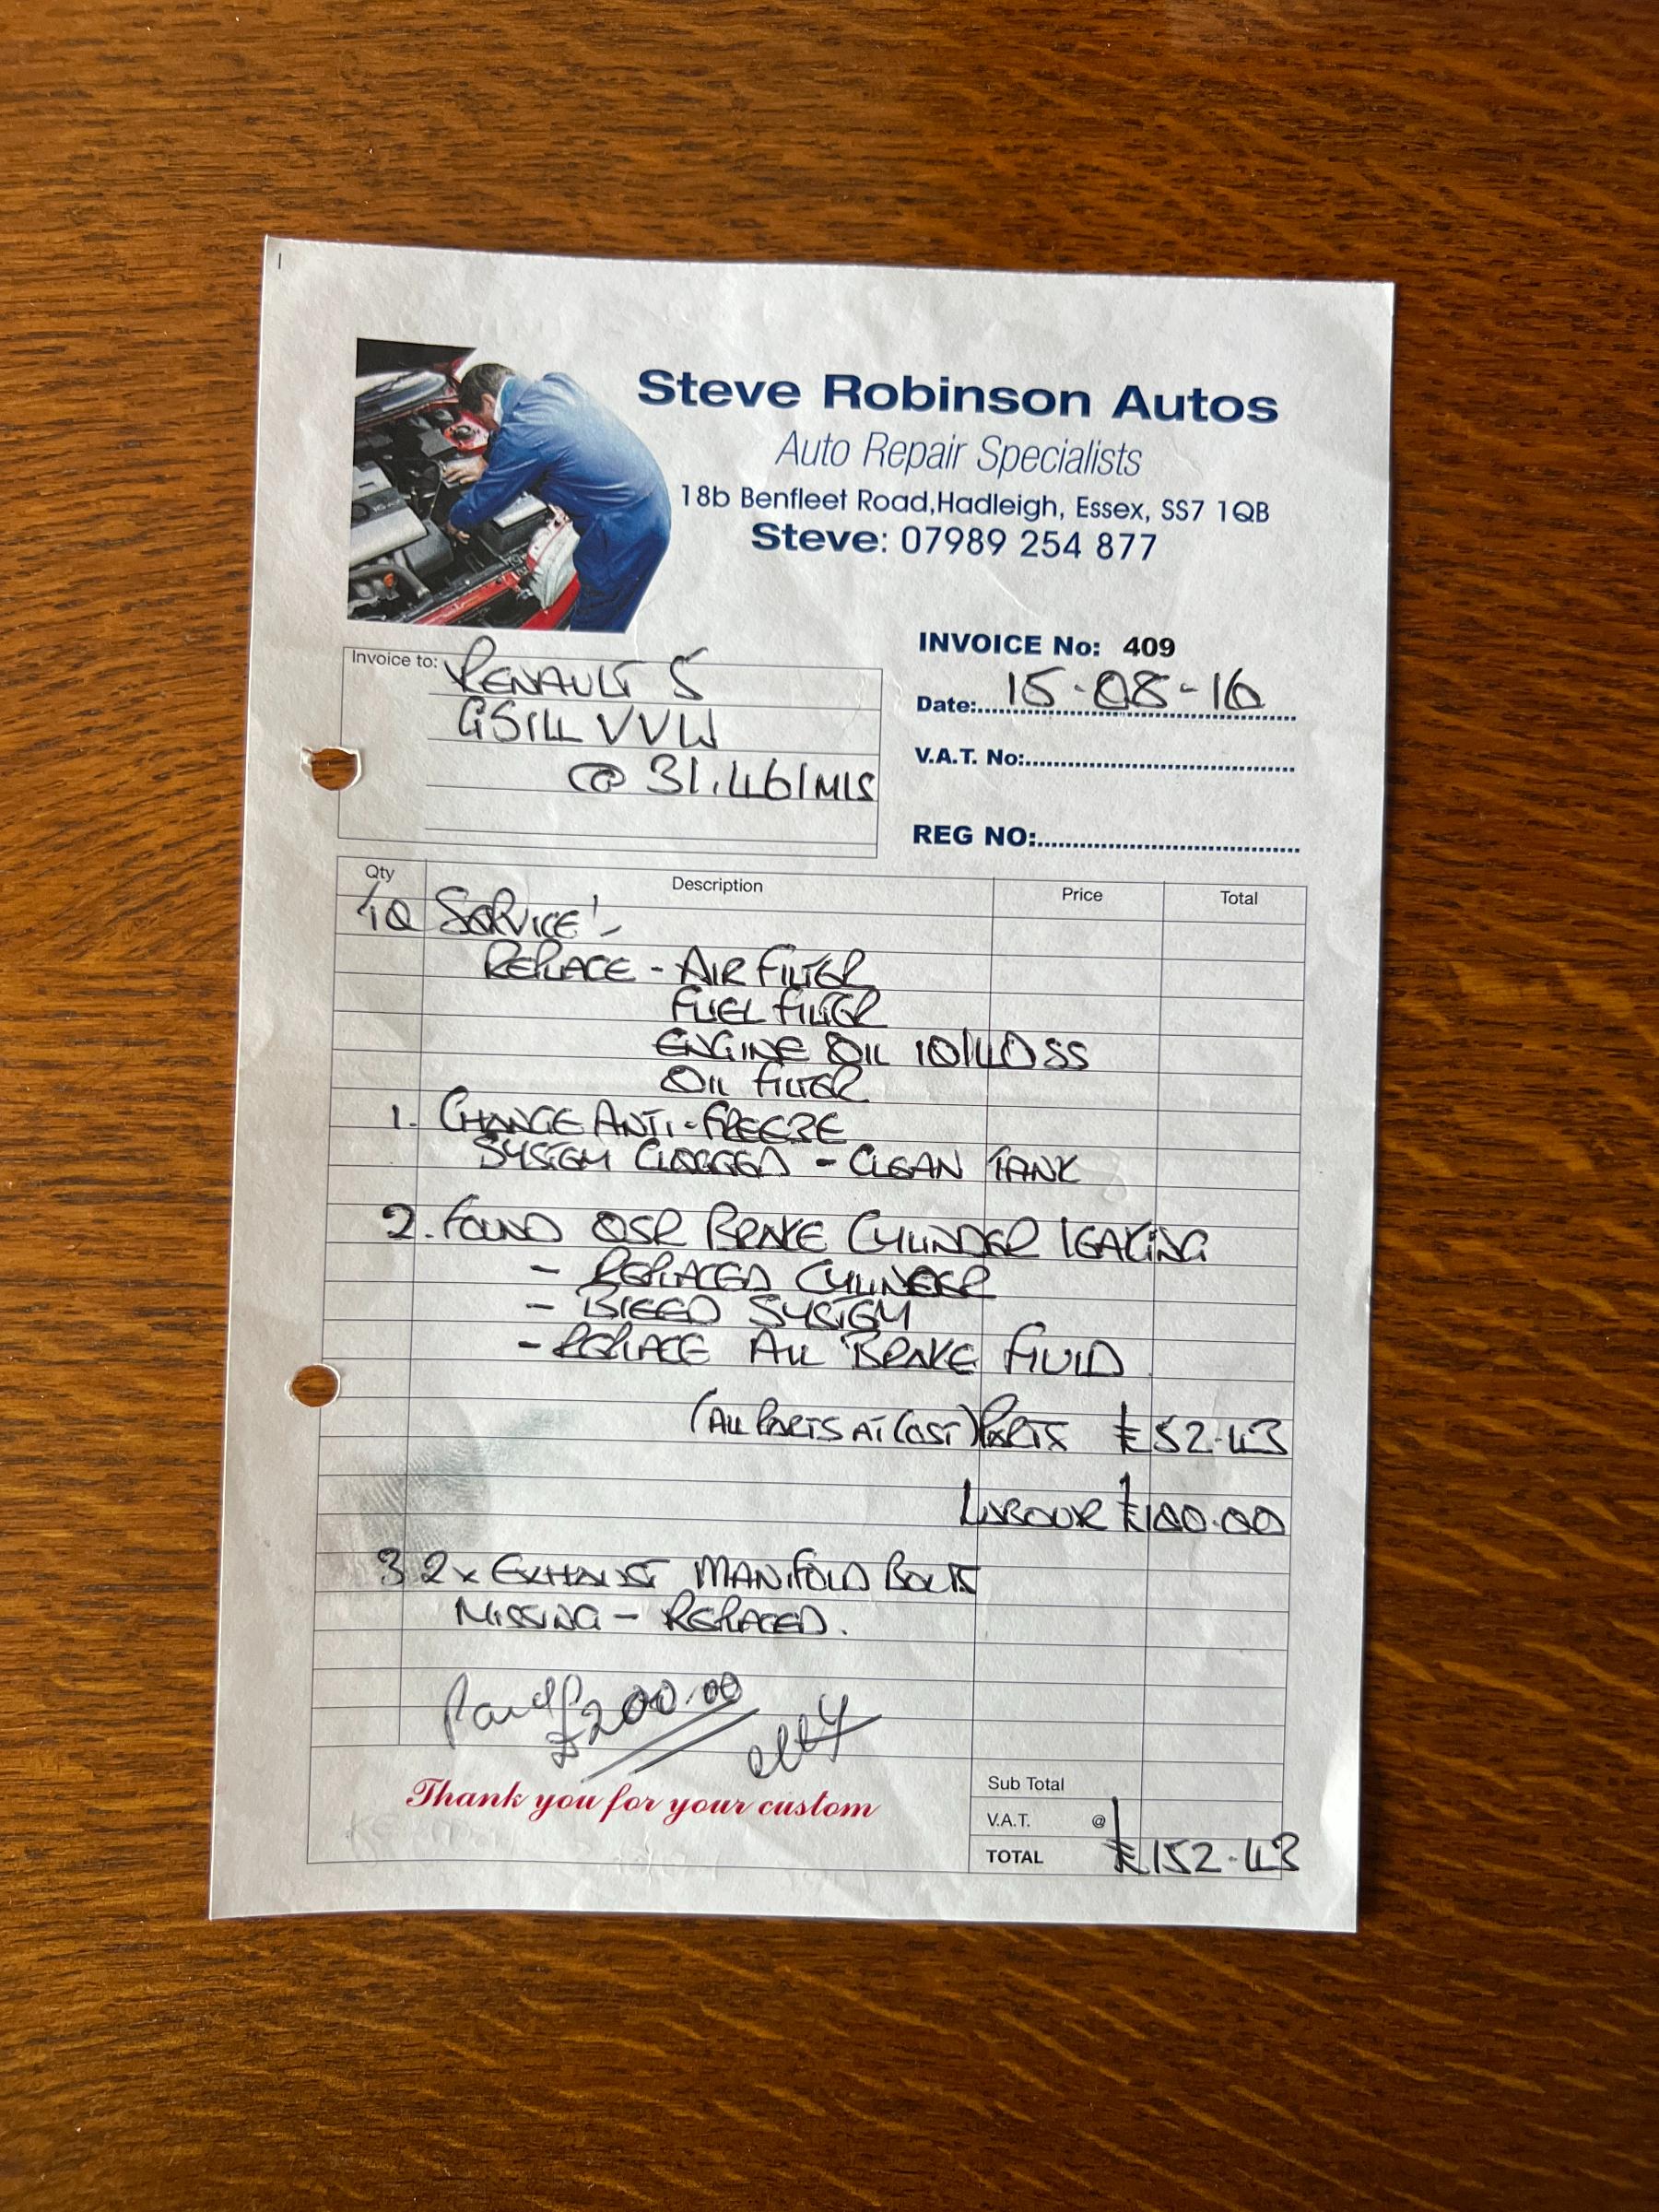 Steve Robinson Autos
Auto Repair Specialists
18b Benfleet Road,Hadleigh, Essex, SS7 1QB
Steve: 07989 254 877
INVOICE No: 409
Invoice to: RENAULT 5
Date: 15-08-16
G514 VVW
V.A.T. No:
@ 31.461 MLS
REG NO:
Qty Description Price Total
SERVICE:-
REPLACE - AIR FILTER
FUEL FILTER
ENGINE OIL 10/40 SS
OIL FILTER
1. CHANGE ANTI-FREEZE
SYSTEM CLOGGED - CLEAN TANK
2. FOUND OSR BRAKE CYLINDER LEAKING
- REPLACED CYLINDER
- BLEED SYSTEM
- REPLACE ALL BRAKE FLUID
(ALL PARTS AT COST) PARTS £52.43
LABOUR £100.00
3 2x EXHAUST MANIFOLD BOLTS
MISSING - REPLACED.
Paid £200.00
Thank you for your custom
Sub Total
V.A.T. @
TOTAL £152.43